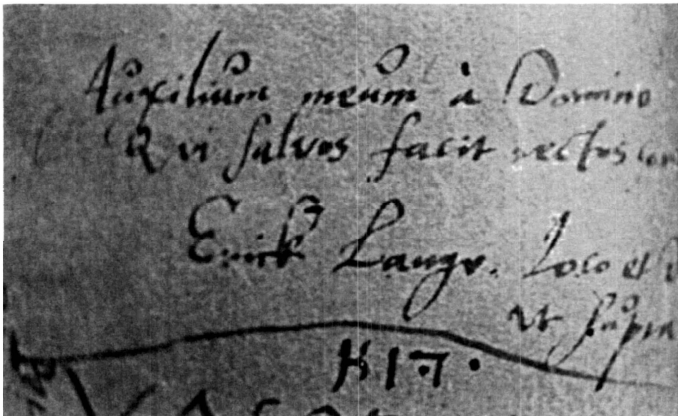 Auxilium meum à Domino
Qui salvos facit rectos
Erick Lange. Loco et
ut supra